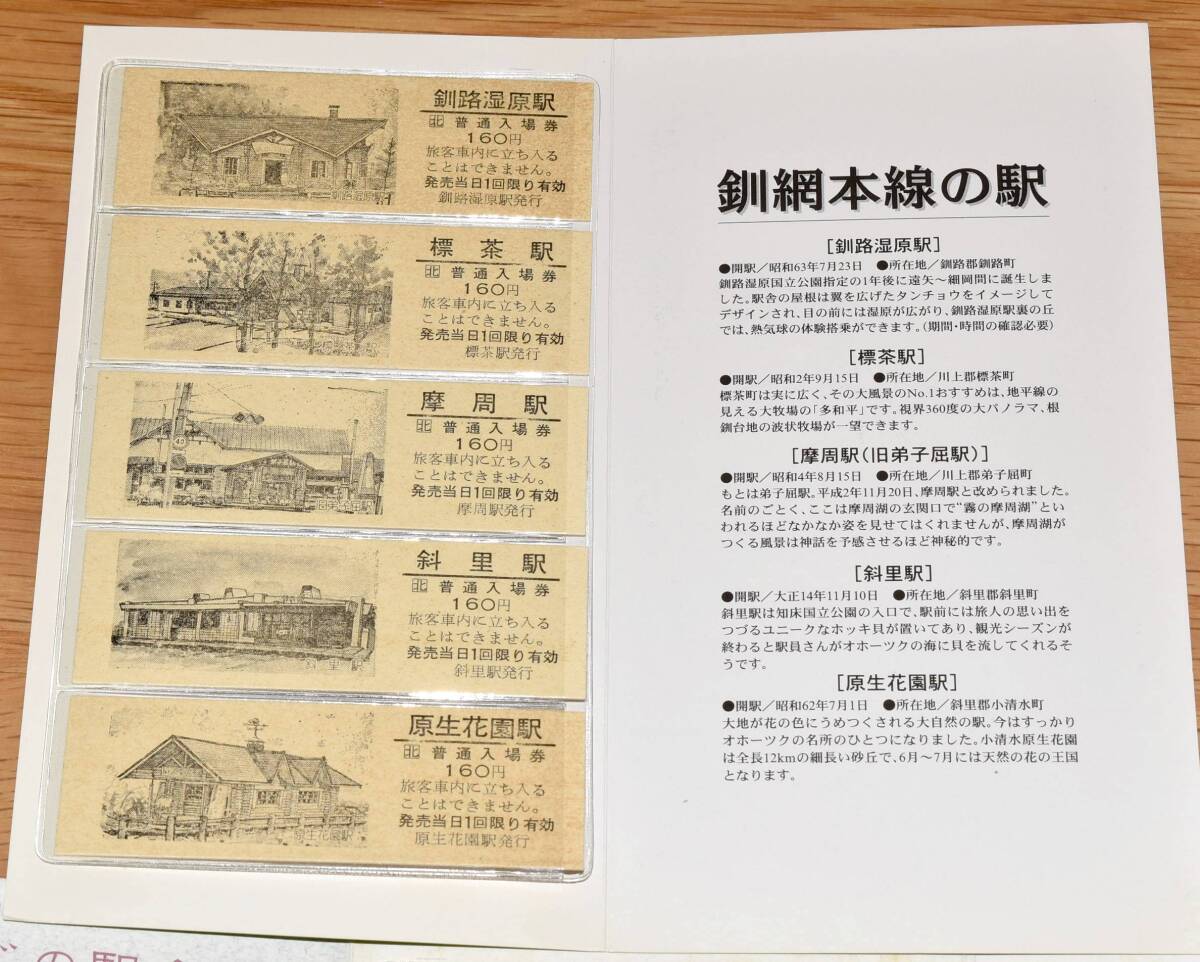 釧路湿原駅
釧路湿原駅
北 普通入場券
160円
旅客車内に立ち入る
ことはできません。
発売当日1回限り有効
釧路湿原駅発行
標茶駅
北 普通入場券
160円
旅客車内に立ち入る
ことはできません。
発売当日1回限り有効
標茶駅発行
摩周駅
北 普通入場券
160円
旅客車内に立ち入る
ことはできません。
発売当日1回限り有効
摩周駅発行
斜里駅
斜里駅
北 普通入場券
160円
旅客車内に立ち入る
ことはできません。
発売当日1回限り有効
斜里駅発行
原生花園駅
原生花園駅
北 普通入場券
160円
旅客車内に立ち入る
ことはできません。
発売当日1回限り有効
原生花園駅発行
釧網本線の駅
[釧路湿原駅]
●開駅/昭和63年7月23日 ●所在地/釧路郡釧路町
釧路湿原国立公園指定の1年後に遠矢〜細岡間に誕生しま
した。駅舎の屋根は翼を広げたタンチョウをイメージして
デザインされ、目の前には湿原が広がり、釧路湿原駅裏の丘
では、熱気球の体験搭乗ができます。(期間・時間の確認必要)
[標茶駅]
●開駅/昭和2年9月15日 ●所在地/川上郡標茶町
標茶町は実に広く、その大風景のNo.1おすすめは、地平線の
見える大牧場の「多和平」です。視界360度の大パノラマ、根
釧台地の波状牧場が一望できます。
[摩周駅(旧弟子屈駅)]
●開駅/昭和4年8月15日 ●所在地/川上郡弟子屈町
もとは弟子屈駅。平成2年11月20日、摩周駅と改められました。
名前のごとく、ここは摩周湖の玄関口で“霧の摩周湖”とい
われるほどなかなか姿を見せてはくれませんが、摩周湖が
つくる風景は神話を予感させるほど神秘的です。
[斜里駅]
●開駅/大正14年11月10日 ●所在地/斜里郡斜里町
斜里駅は知床国立公園の入口で、駅前には旅人の思い出を
つづるユニークなホッキ貝が置いてあり、観光シーズンが
終わると駅員さんがオホーツクの海に貝を流してくれるそ
うです。
[原生花園駅]
●開駅/昭和62年7月1日 ●所在地/斜里郡小清水町
大地が花の色にうめつくされる大自然の駅。今はすっかり
オホーツクの名所のひとつになりました。小清水原生花園
は全長12kmの細長い砂丘で、6月〜7月には天然の花の王国
となります。
の駅